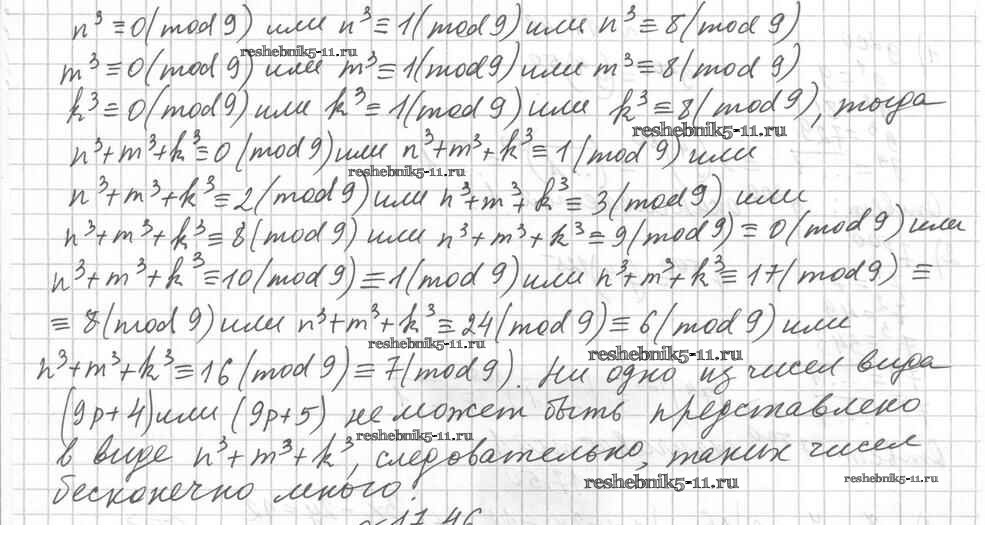 n³≡0(mod 9) или n³≡1(mod 9) или n³≡8(mod 9)
reshebnik5-11.ru
m³≡0(mod 9) или m³≡1(mod 9) или m³≡8(mod 9)
k³≡0(mod 9) или k³≡1(mod 9) или k³≡8(mod 9), тогда
reshebnik5-11.ru
n³+m³+k³≡0(mod 9) или n³+m³+k³≡1(mod 9) или
reshebnik5-11.ru
n³+m³+k³≡2(mod 9) или n³+m³+k³≡3(mod 9) или
n³+m³+k³≡8(mod 9) или n³+m³+k³≡9(mod 9)≡0(mod 9) или
n³+m³+k³≡10(mod 9)≡1(mod 9) или n³+m³+k³≡17(mod 9)≡
≡8(mod 9) или n³+m³+k³≡24(mod 9)≡6(mod 9) или
reshebnik5-11.ru
reshebnik5-11.ru
n³+m³+k³≡16(mod 9)≡7(mod 9). Ни одно из чисел вида
(9p+4) или (9p+5) не может быть представлено
reshebnik5-11.ru
в виде n³+m³+k³, следовательно, таких чисел
reshebnik5-11.ru
reshebnik5-11.ru
бесконечно много.